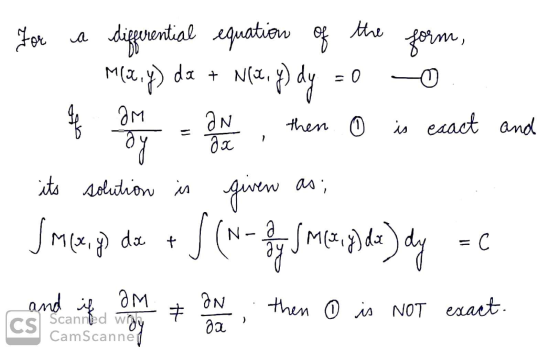 For a differential equation of the form,
M(x,y) dx + N(x,y) dy = 0 —①
If ∂M/∂y = ∂N/∂x , then ① is exact and
its solution is given as;
∫ M(x,y) dx + ∫ (N - ∂/∂y ∫ M(x,y) dx) dy = C
and if ∂M/∂y ≠ ∂N/∂x , then ① is NOT exact.
CS Scanned with
CamScanner